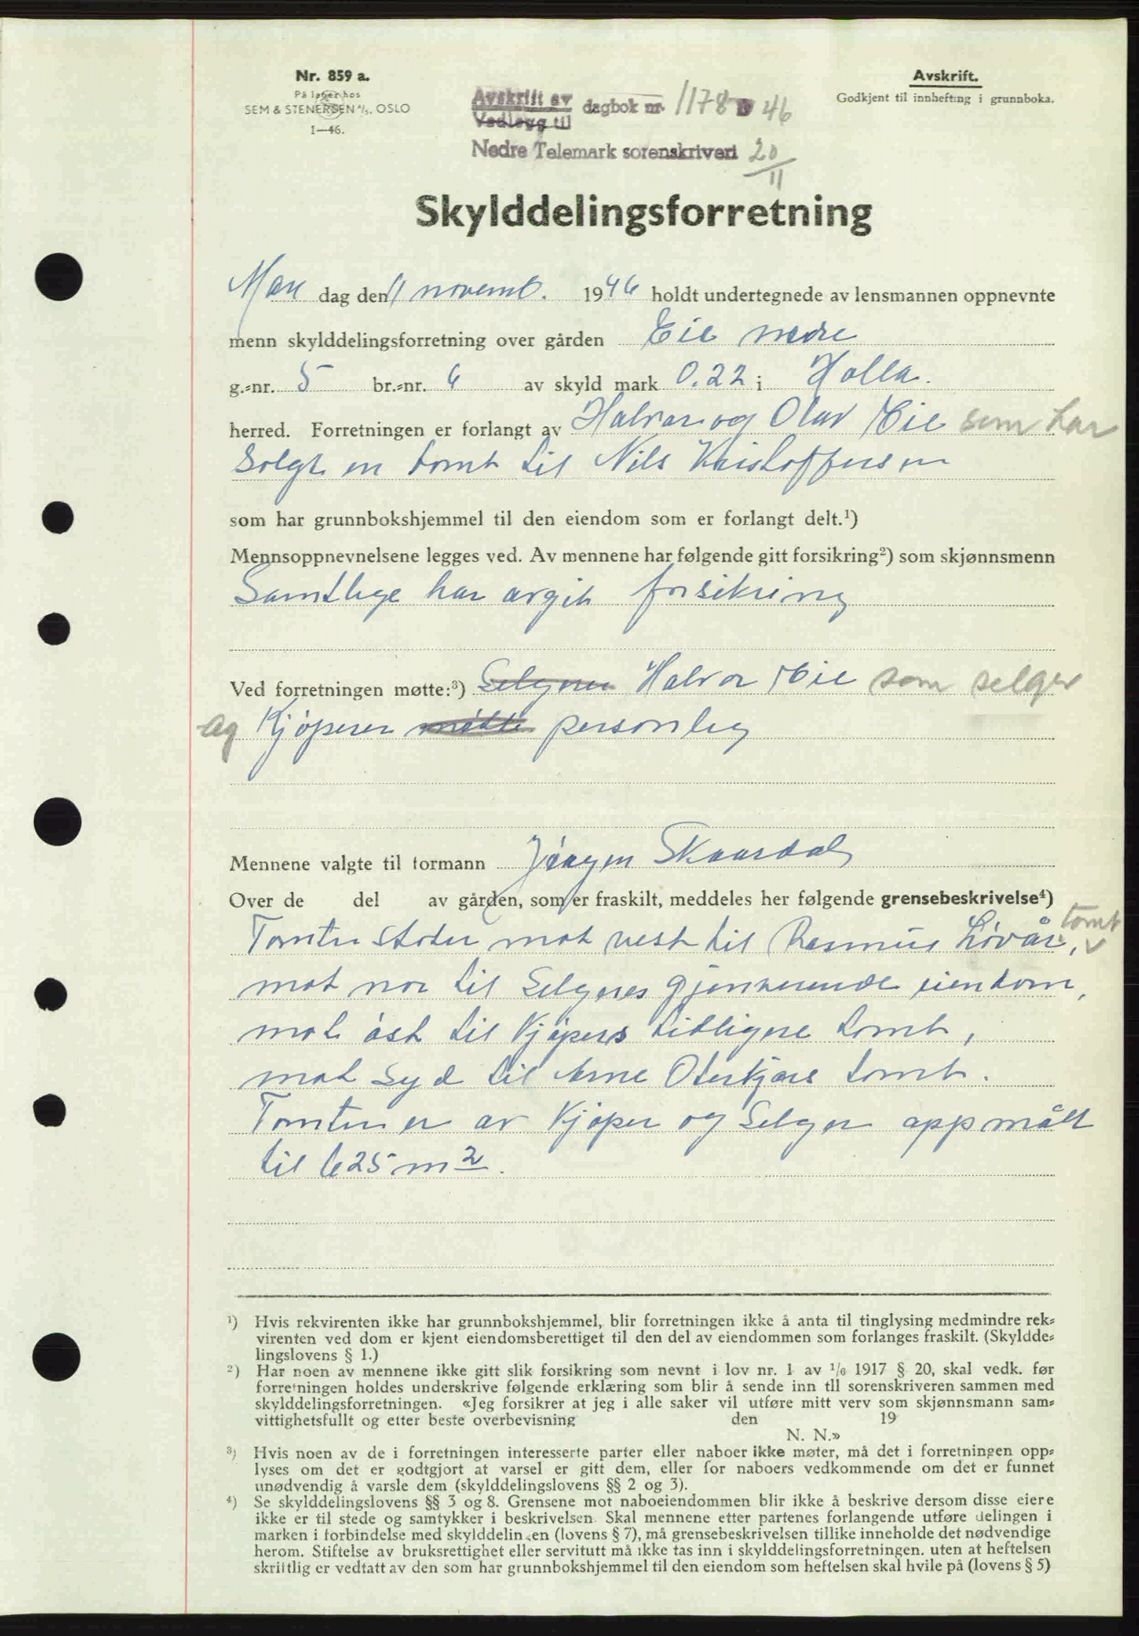 Nr. 859 a.
På lager hos
SEM & STENERSEN A/S, OSLO
1—46.
Avskrift.
Godkjent til innhefting i grunnboka.
Avskrift av
Vedlegg til
dagbok nr. 1178 1946
Nedre Telemark sorenskriveri 20/11
Skylddelingsforretning
Man dag den 11 novemb. 1946 holdt undertegnede av lensmannen oppnevnte
menn skylddelingsforretning over gården Eie nedre
g.-nr. 5 br.-nr. 6 av skyld mark 0.22 i Holla.
herred. Forretningen er forlangt av Halvor og Olav Eie som har
Solgt en tomt til Nils Kristoffersen
som har grunnbokshjemmel til den eiendom som er forlangt delt.¹)
Mennsoppnevnelsene legges ved. Av mennene har følgende gitt forsikring²) som skjønnsmenn
Samtlige har avgit forsikring
Ved forretningen møtte:³) Selgeren Halvor Eie som selger
og Kjøperen møtte personlig
Mennene valgte til formann Jørgen Skaardal
Over de del av gården, som er fraskilt, meddeles her følgende grensebeskrivelse⁴)
Tomten støter mot vest til Rasmus Løvås, tomt
mot nor til Selgeres gjenverende eiendom,
mot øst til Kjøpers tidligere tomt,
mot Syd til Arne Oterkjærs tomt.
Tomten er av Kjøper og Selger oppmålt
til 625 m².
¹) Hvis rekvirenten ikke har grunnbokshjemmel, blir forretningen ikke å anta til tinglysing medmindre rek-
virenten ved dom er kjent eiendomsberettiget til den del av eiendommen som forlanges fraskilt. (Skyldde-
lingslovens § 1.)
²) Har noen av mennene ikke gitt slik forsikring som nevnt i lov nr. 1 av 1/6 1917 § 20, skal vedk. før
forretningen holdes underskrive følgende erklæring som blir å sende inn til sorenskriveren sammen med
skylddelingsforretningen. «Jeg forsikrer at jeg i alle saker vil utføre mitt verv som skjønnsmann sam-
vittighetsfullt og etter beste overbevisning den 19
N. N.»
³) Hvis noen av de i forretningen interesserte parter eller naboer ikke møter, må det i forretningen opp-
lyses om det er godtgjort at varsel er gitt dem, eller for naboers vedkommende om det er funnet
unødvendig å varsle dem (skylddelingslovens §§ 2 og 3).
⁴) Se skylddelingslovens §§ 3 og 8. Grensene mot naboeiendommen blir ikke å beskrive dersom disse eiere
ikke er til stede og samtykker i beskrivelsen. Skal mennene etter partenes forlangende utføre delingen i
marken i forbindelse med skylddelingen (lovens § 7), må grensebeskrivelsen tillike inneholde det nødvendige
herom. Stiftelse av bruksrettighet eller servitutt må ikke tas inn i skylddelingsforretningen, uten at heftelsen
skriftlig er vedtatt av den som har grunnbokshjemmel til den eiendom som heftelsen skal hvile på (lovens § 5)